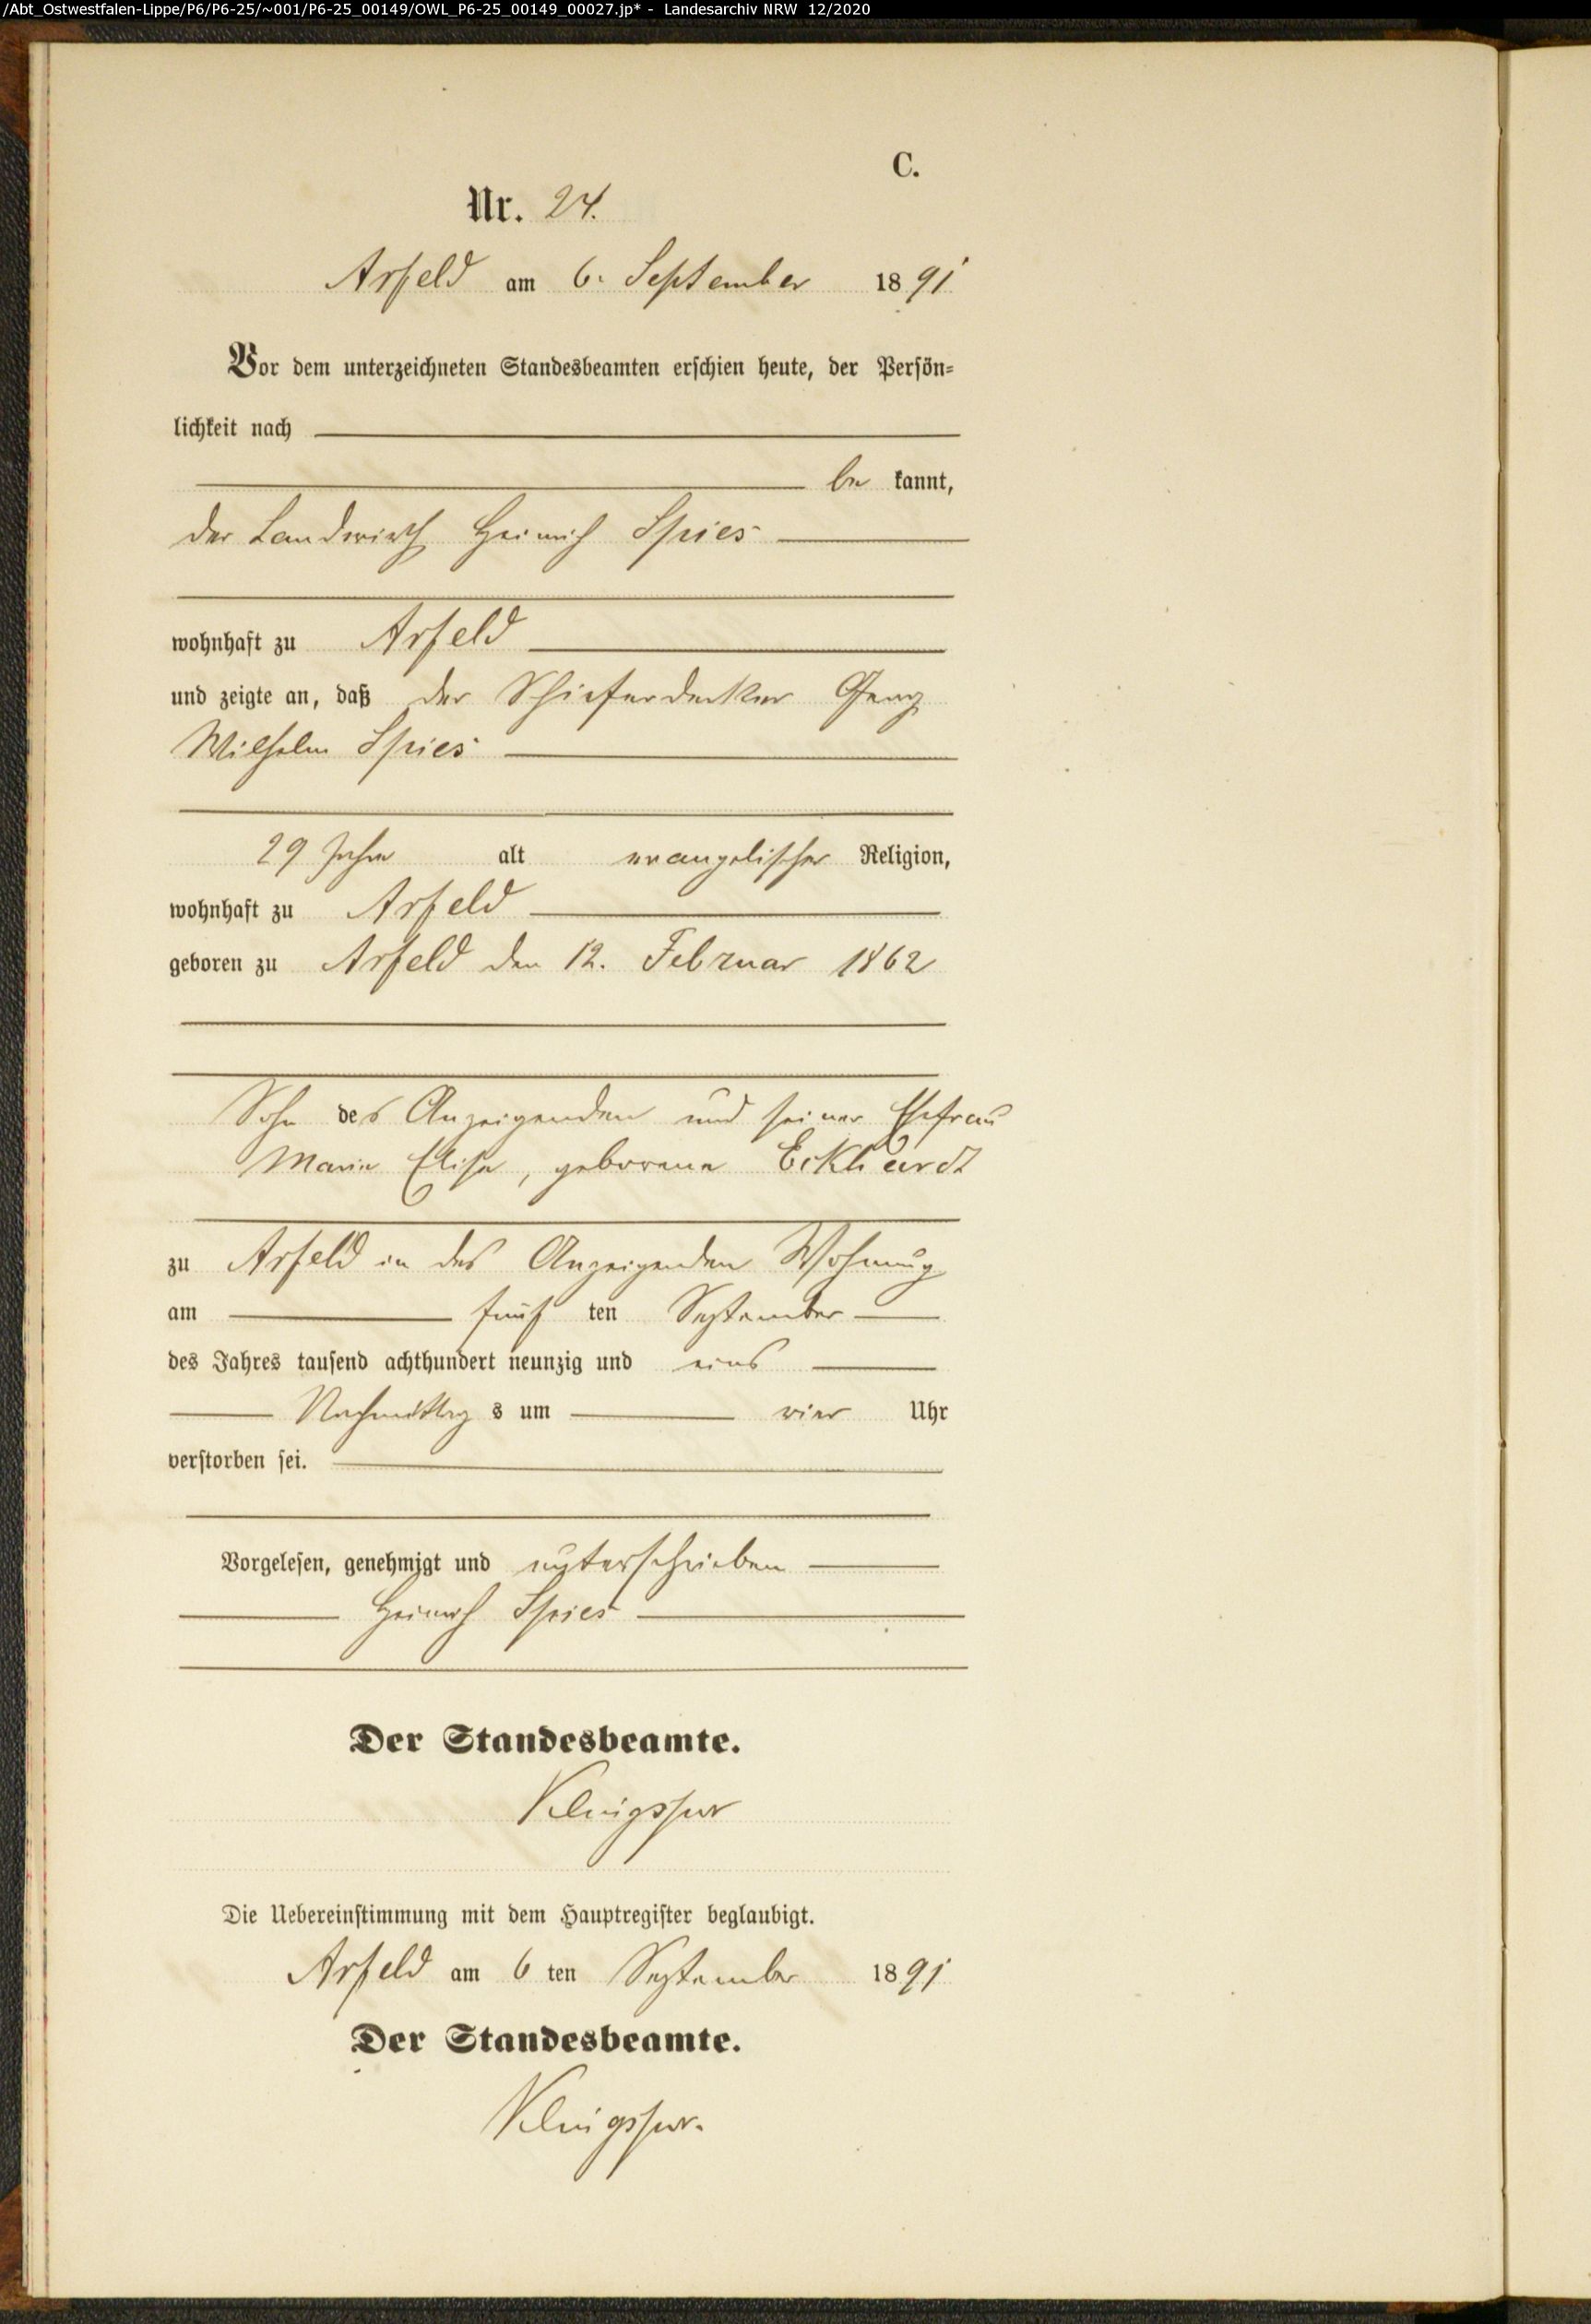 /Abt_Ostwestfalen-Lippe/P6/P6-25/~001/P6-25_00149/OWL_P6-25_00149_00027.jp* - Landesarchiv NRW 12/2020
C.
Nr. 24.
Arfeld am 6. September 1891
Vor dem unterzeichneten Standesbeamten erschien heute, der Persön-
lichkeit nach
be kannt,
der Landwirth Heinrich Spies
wohnhaft zu Arfeld
und zeigte an, daß der Schieferdecker Georg
Wilhelm Spies
29 Jahre alt evangelischer Religion,
wohnhaft zu Arfeld
geboren zu Arfeld den 12. Februar 1862
Sohn des Anzeigenden und seiner Ehefrau
Marie Elise, geborene Eckhardt
zu Arfeld in des Anzeigenden Wohnung
am fünf ten September
des Jahres tausend achthundert neunzig und eins
Nachmittag s um vier Uhr
verstorben sei.
Vorgelesen, genehmigt und unterschrieben
Heinrich Spies
Der Standesbeamte.
Klingspor
Die Uebereinstimmung mit dem Hauptregister beglaubigt.
Arfeld am 6 ten September 1891
Der Standesbeamte.
Klingspor.